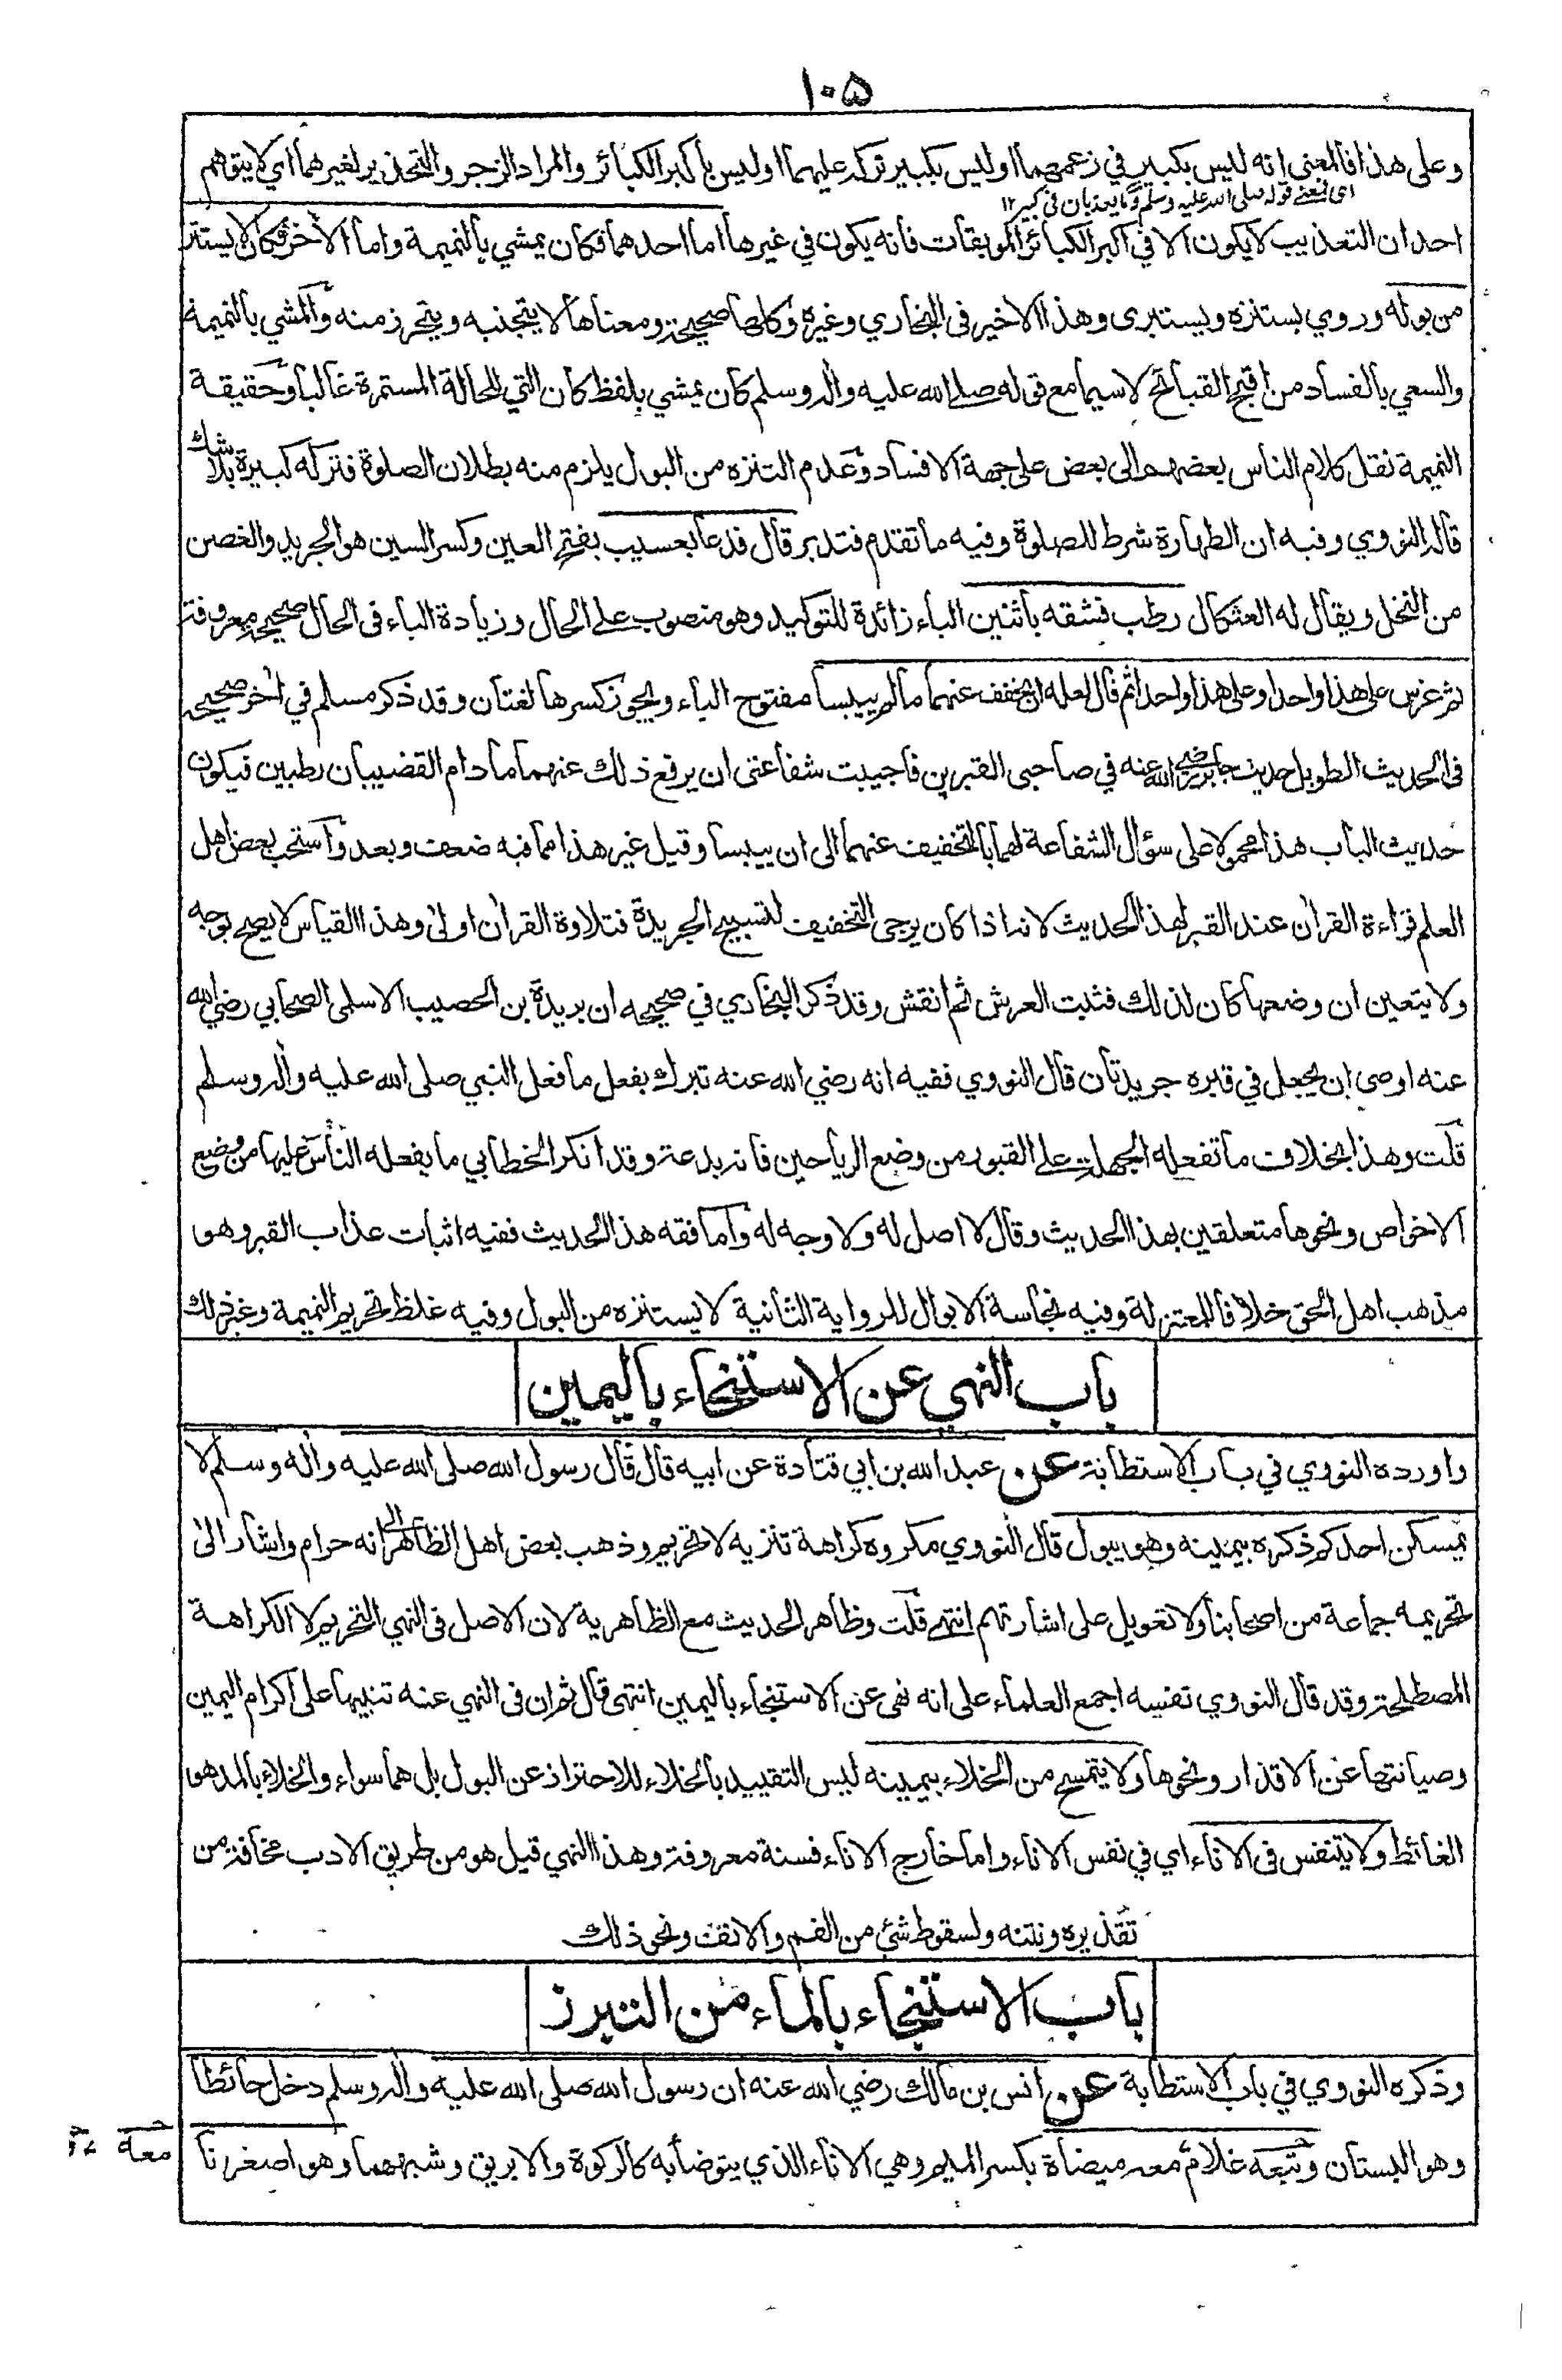 ١٠٥
وعلى هذا فالمعنى انه ليس بكبير في زعمهما او ليس بكبير تركه عليهما او ليس باكبر الكبائر والمراد الزجر والتحذير لغيرهما اي لا يتوهم
اى فمعنى قوله صلى الله عليه وسلم وما يعذبان فى كبير ١٢
احد ان التعذيب لا يكون الا في اكبر الكبائر الموبقات فانه يكون في غيرها اما احدهما فكان يمشي بالنميمة واما الأخر فكان لا يستتر
من بوله وروي يستنزه ويستبرى وهذا الاخير فى البخاري وغيره وكلها صحيحة ومعناها لا يتجنبه ويتحرز منه والمشي بالنميمة
والسعي بالفساد من اقبح القبائح لا سيما مع قوله صلى الله عليه واله وسلم كان يمشي بلفظ كان التي للحالة المستمرة غالبا وحقيقة
النميمة نقل كلام الناس بعضهم الى بعض على جهة الافساد وعدم التنزه من البول يلزم منه بطلان الصلوة فتركه كبيرة بلا شك
قاله النووي وفيه ان الطهارة شرط للصلوة وفيه ما تقدم فتدبر قال فدعا بعسيب بفتح العين وكسر السين هو الجريد والغصن
من النخل ويقال له العثكال رطب فشقه باثنين الباء زائدة للتوكيد وهو منصوب على الحال وزيادة الباء فى الحال صحيحة معروفة
ثم غرس على هذا واحدا وعلى هذا واحدا ثم قال لعله ان يخفف عنهما ما لم ييبسا مفتوح الباء ويجوز كسرها لغتان وقد ذكر مسلم في أخر صحيحه
فى الحديث الطويل حديث جابر رضي الله عنه في صاحبى القبرين فاجيبت شفاعتى ان يرفع ذلك عنهما ما دام القضيبان رطبين فيكون
حديث الباب هذا محمولا على سؤال الشفاعة لهما بالتخفيف عنهما الى ان ييبسا وقيل غير هذا مما فيه ضعف وبعد واستحب بعض اهل
العلم قراءة القرأن عند القبر لهذا الحديث لانه اذا كان يرجى التخفيف لتسبيح الجريدة فتلاوة القرأن اولى وهذا القياس لا يصح بوجه
ولا يتعين ان وضعها كان لذلك فثبت العرش ثم انقش وقد ذكر البخاري في صحيحه ان بريدة بن الحصيب الاسلمى الصحابي رضي الله
عنه اوصى ان يجعل في قبره جريدتان قال النووي ففيه انه رضي الله عنه تبرك بفعل ما فعل النبي صلى الله عليه واله وسلم
قلت وهذا بخلاف ما تفعله الجهلة على القبور من وضع الرياحين فانه بدعة وقد انكر الخطابي ما يفعله الناس عليها من وضع
الاخواص ونحوها متعلقين بهذا الحديث وقال لا اصل له ولا وجه له واما فقه هذا الحديث ففيه اثبات عذاب القبر وهو
مذهب اهل الحق خلافا للمعتزلة وفيه نجاسة الابوال للرواية الثانية لا يستنزه من البول وفيه غلظ تحريم النميمة وغير ذلك
باب النهي عن الاستنجاء باليمين
واورده النووي في باب الاستطابة عن عبد الله بن ابي قتادة عن ابيه قال قال رسول الله صلى الله عليه واله وسلم لا
يمسكن احدكم ذكره بيمينه وهو يبول قال النووي مكروه كراهة تنزيه لا تحريم وذهب بعض اهل الظاهر الى انه حرام واشار الى
تحريمه جماعة من اصحابنا ولا تعويل على اشارتهم انتهى قلت وظاهر الحديث مع الظاهرية لان الاصل فى النهي التحريم لا الكراهة
المصطلحة وقد قال النووي نفسه اجمع العلماء على انه نهى عن الاستنجاء باليمين انتهى قال ثم ان فى النهي عنه تنبيها على اكرام اليمين
وصيانتها عن الاقذار ونحوها ولا يتمسح من الخلاء بيمينه ليس التقييد بالخلاء للاحتراز عن البول بل هما سواء والخلاء بالمد هو
الغائط ولا يتنفس فى الاناء اي في نفس الاناء واما خارج الاناء فسنة معروفة وهذا النهي قيل هو من طريق الادب مخافة من
تقذيره ونتنه ولسقوط شئ من الفم والانف ونحو ذلك
باب الاستنجاء بالماء من التبرز
وذكره النووي في باب الاستطابة عن انس بن مالك رضي الله عنه ان رسول الله صلى الله عليه واله وسلم دخل حائطا
وهو البستان وتبعه غلام معه ميضأة بكسر الميم وهي الاناء الذي يتوضأ به كالركوة والابريق وشبههما وهو اصغرنا
معه